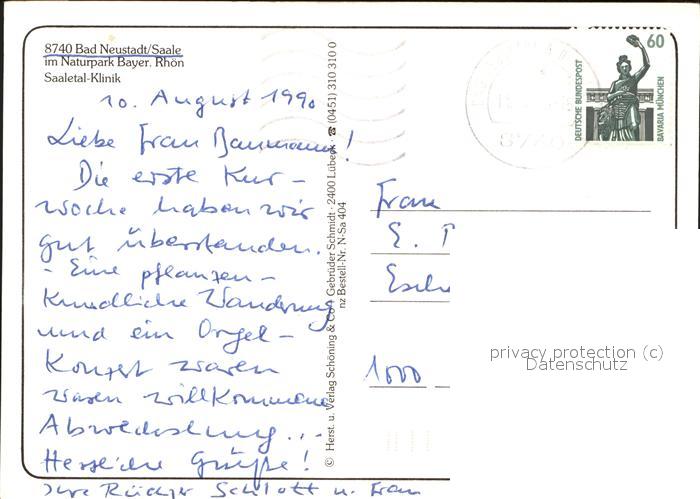 8740 Bad Neustadt/Saale
im Naturpark Bayer. Rhön
Saaletal-Klinik
10. August 1990
Liebe Frau Baumann!
Die erste Kur-
woche haben wir
gut überstanden.
- Eine pflanzen-
kundliche Wanderung
und ein Orgel-
Konzert waren
waren willkommene
Abwechslung...
Herzliche Grüße!
Ihre Rüdiger Schlott u. Frau
© Herst. u. Verlag Schöning & Co + Gebrüder Schmidt · 2400 Lübeck · ☎ (0451) 310 310 0
nz Bestell-Nr. N-Sa 404
60
DEUTSCHE BUNDESPOST
BAVARIA MÜNCHEN
8740
Frau
E.
1000
privacy protection (c)
Datenschutz